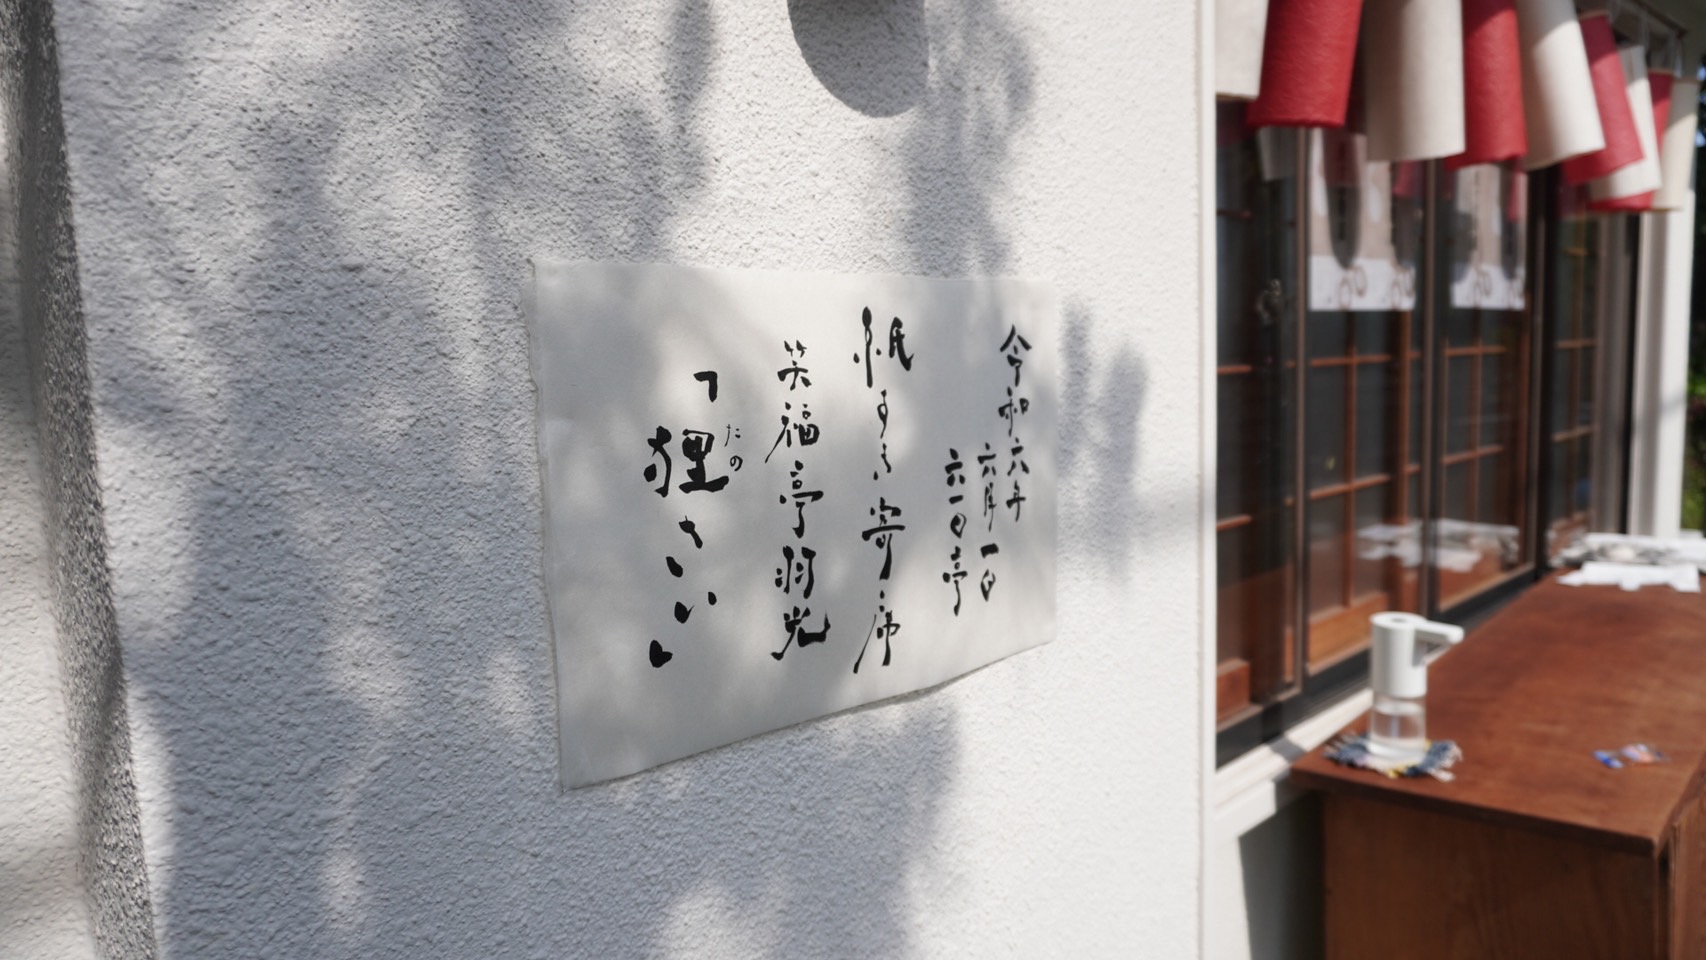 令和六年
六月一日
六一日亭
紙すき寄席
笑福亭羽光
たの
「狸さい」